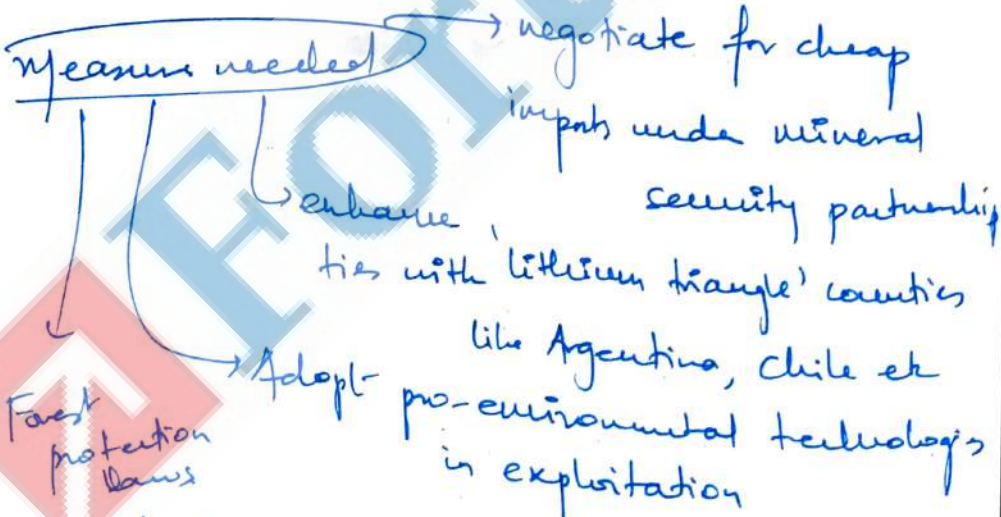 Measures needed
negotiate for cheap
imports under mineral
security partnership
enhance
ties with 'lithium triangle' countries
like Argentina, Chile etc
Adopt
pro-environmental technologies
in exploitation
Forest
protection
laws
For